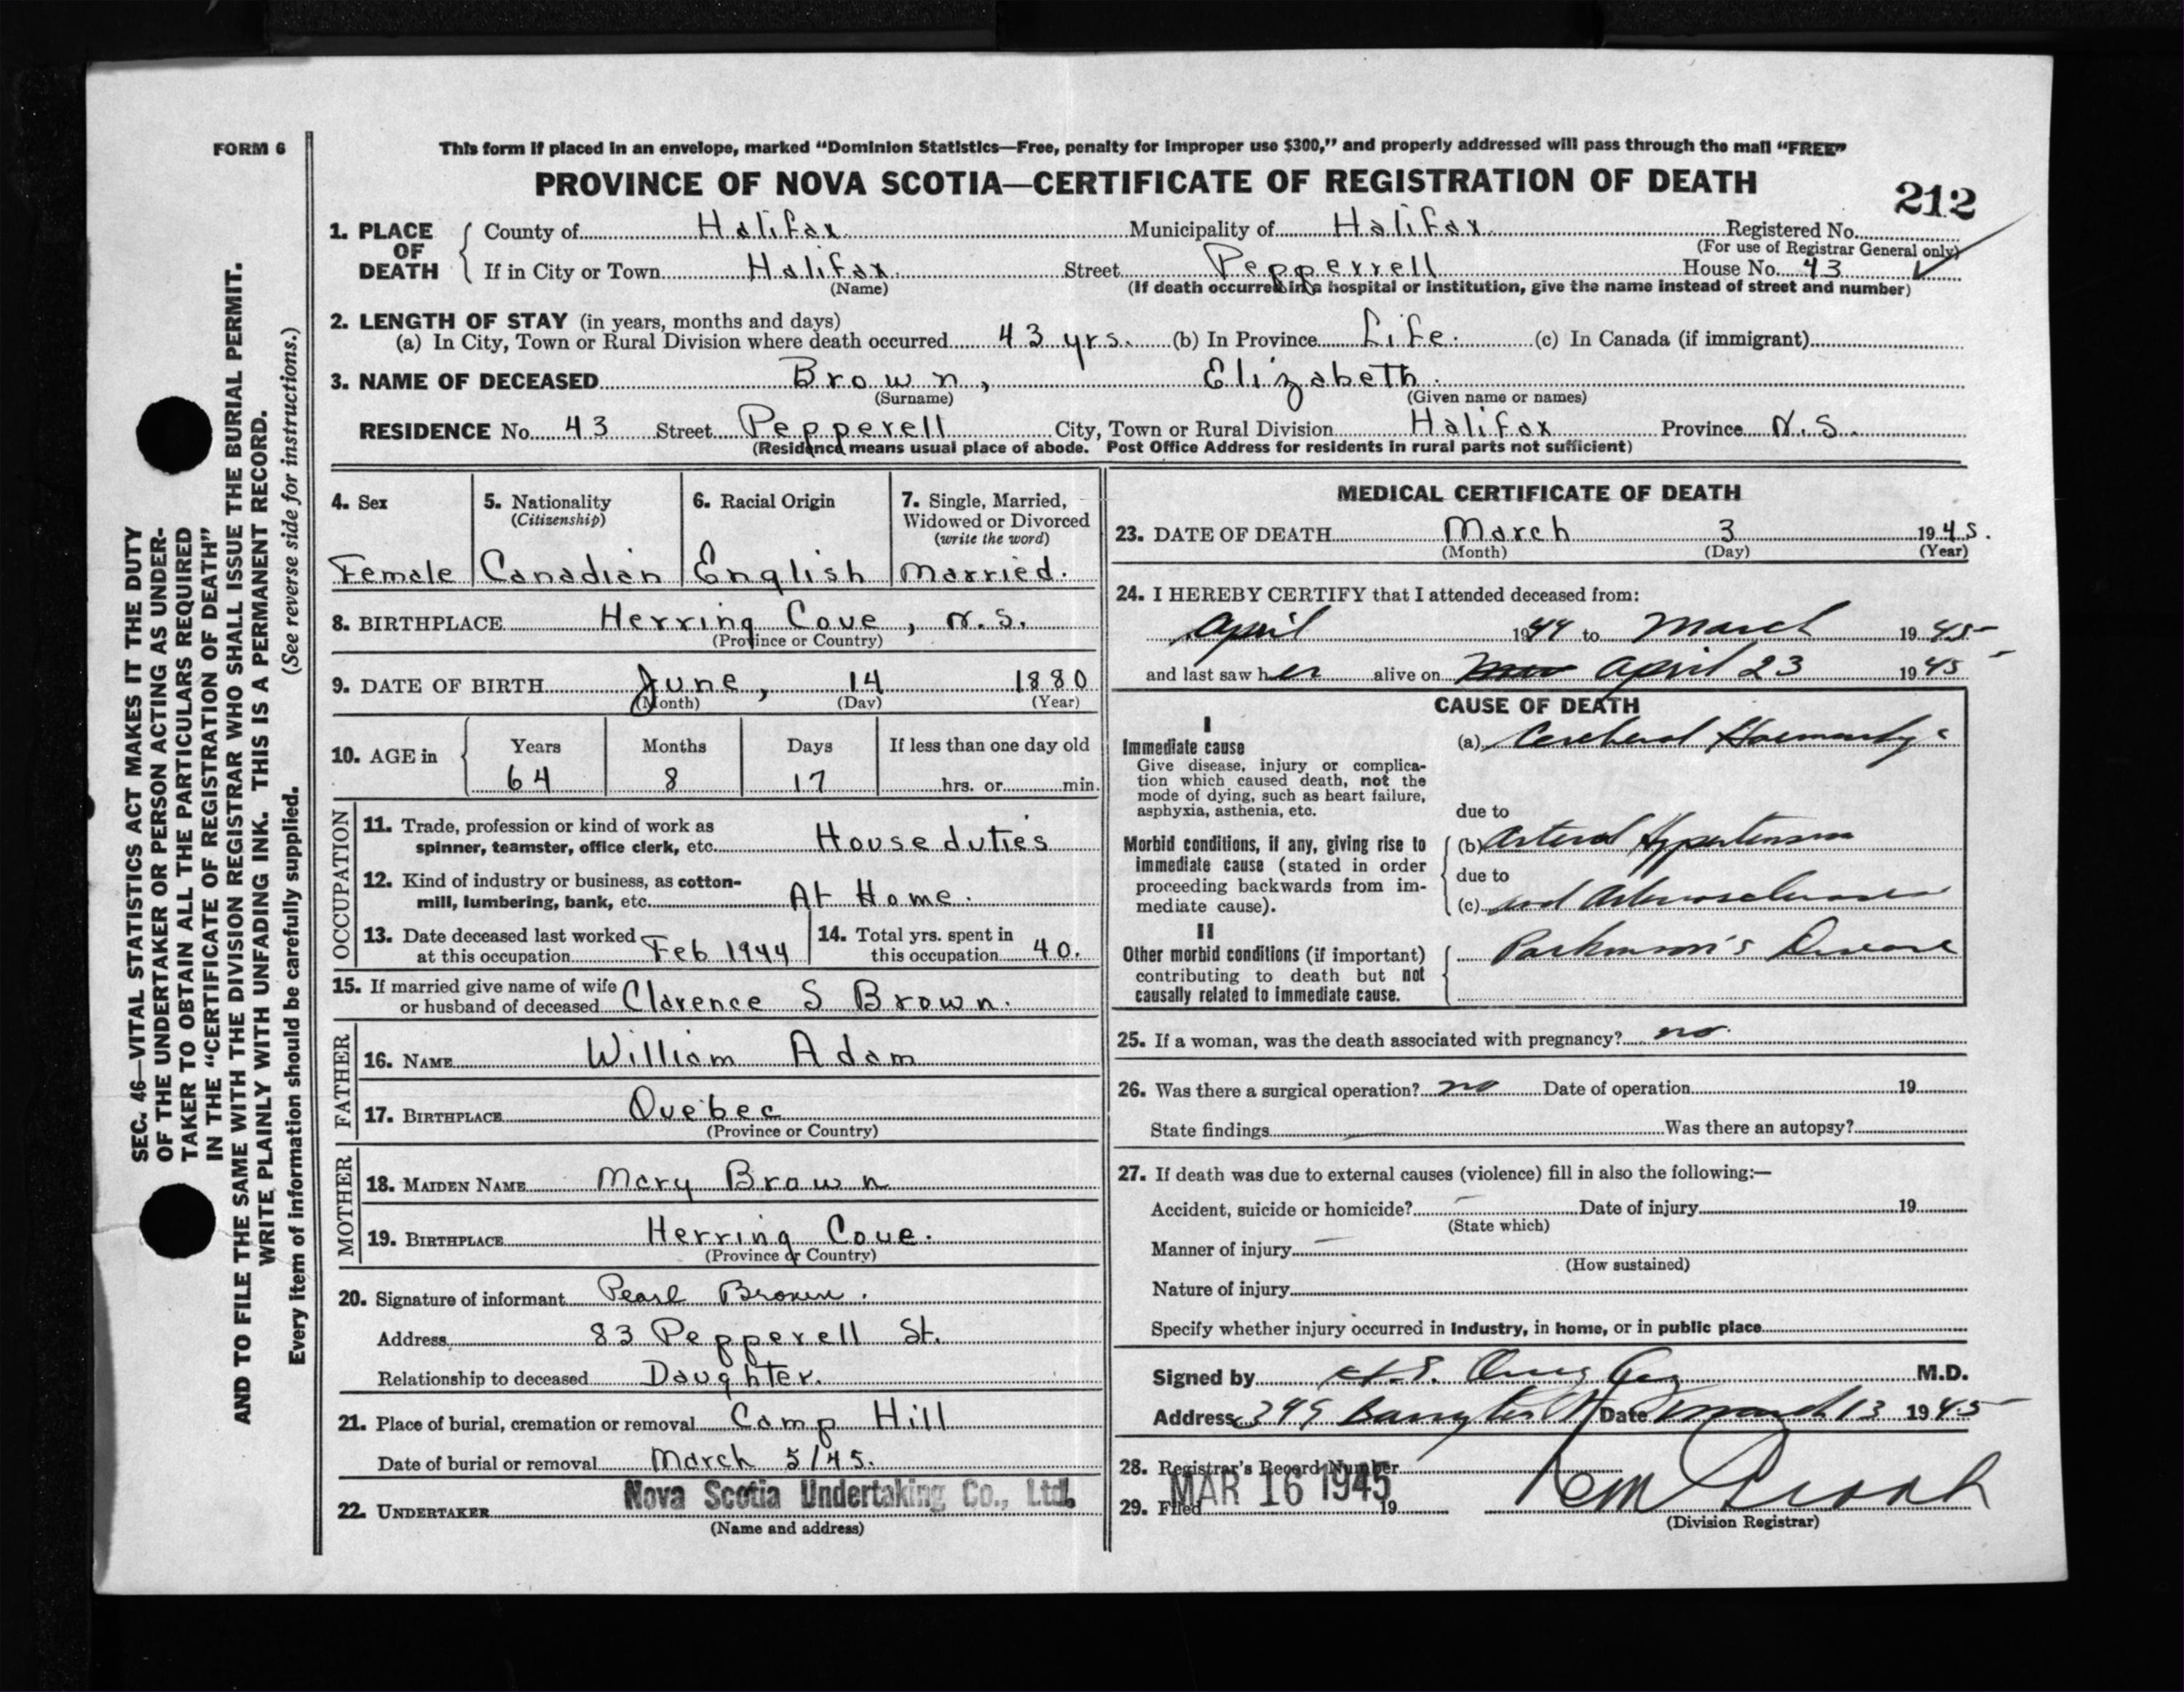 FORM 6
This form if placed in an envelope, marked “Dominion Statistics—Free, penalty for improper use $300,” and properly addressed will pass through the mail “FREE”
PROVINCE OF NOVA SCOTIA—CERTIFICATE OF REGISTRATION OF DEATH
212
1. PLACE OF DEATH County of Halifax Municipality of Halifax Registered No.
(For use of Registrar General only)
If in City or Town Halifax Street Pepperrell House No. 43
(Name) (If death occurred in a hospital or institution, give the name instead of street and number)
2. LENGTH OF STAY (in years, months and days)
(a) In City, Town or Rural Division where death occurred 43 yrs. (b) In Province Life. (c) In Canada (if immigrant)
3. NAME OF DECEASED Brown, Elizabeth.
(Surname) (Given name or names)
RESIDENCE No. 43 Street Pepperell City, Town or Rural Division Halifax Province N.S.
(Residence means usual place of abode. Post Office Address for residents in rural parts not sufficient)
4. Sex 5. Nationality (Citizenship) 6. Racial Origin 7. Single, Married, Widowed or Divorced (write the word)
Female Canadian English Married.
8. BIRTHPLACE Herring Cove, N.S.
(Province or Country)
9. DATE OF BIRTH June, 14 1880
(Month) (Day) (Year)
10. AGE in Years Months Days If less than one day old
64 8 17 hrs. or min.
OCCUPATION
11. Trade, profession or kind of work as
spinner, teamster, office clerk, etc. House duties
12. Kind of industry or business, as cotton-
mill, lumbering, bank, etc. At Home.
13. Date deceased last worked at this occupation Feb 1944
14. Total yrs. spent in this occupation 40.
15. If married give name of wife
or husband of deceased Clarence S Brown.
FATHER
16. NAME William Adam
17. BIRTHPLACE Quebec
(Province or Country)
MOTHER
18. MAIDEN NAME Mary Brown
19. BIRTHPLACE Herring Cove.
(Province or Country)
20. Signature of informant Pearl Brown.
Address 83 Pepperell St.
Relationship to deceased Daughter.
21. Place of burial, cremation or removal Camp Hill
Date of burial or removal March 5/45.
22. UNDERTAKER Nova Scotia Undertaking Co., Ltd.
(Name and address)
MEDICAL CERTIFICATE OF DEATH
23. DATE OF DEATH March 3 1945.
(Month) (Day) (Year)
24. I HEREBY CERTIFY that I attended deceased from:
April 1944 to March 1945
and last saw her alive on April 23 1945
CAUSE OF DEATH
I
Immediate cause (a) Cerebral Haemorrhage
Give disease, injury or complica-
tion which caused death, not the
mode of dying, such as heart failure,
asphyxia, asthenia, etc. due to
Morbid conditions, if any, giving rise to (b) Arterial Hypertension
immediate cause (stated in order due to
proceeding backwards from im- (c) and Arteriosclerosis
mediate cause).
II
Other morbid conditions (if important) Parkinson's Disease
contributing to death but not
causally related to immediate cause.
25. If a woman, was the death associated with pregnancy? no.
26. Was there a surgical operation? no Date of operation 19
State findings Was there an autopsy?
27. If death was due to external causes (violence) fill in also the following:—
Accident, suicide or homicide? Date of injury 19
(State which)
Manner of injury
(How sustained)
Nature of injury
Specify whether injury occurred in industry, in home, or in public place
Signed by M.D.
Address Date March 13 1945
28. Registrar's Record Number
29. Filed 19 MAR 16 1945
(Division Registrar)
SEC. 46—VITAL STATISTICS ACT MAKES IT THE DUTY
OF THE UNDERTAKER OR PERSON ACTING AS UNDER-
TAKER TO OBTAIN ALL THE PARTICULARS REQUIRED
IN THE “CERTIFICATE OF REGISTRATION OF DEATH”
AND TO FILE THE SAME WITH THE DIVISION REGISTRAR WHO SHALL ISSUE THE BURIAL PERMIT.
WRITE PLAINLY WITH UNFADING INK. THIS IS A PERMANENT RECORD.
Every item of information should be carefully supplied. (See reverse side for instructions.)